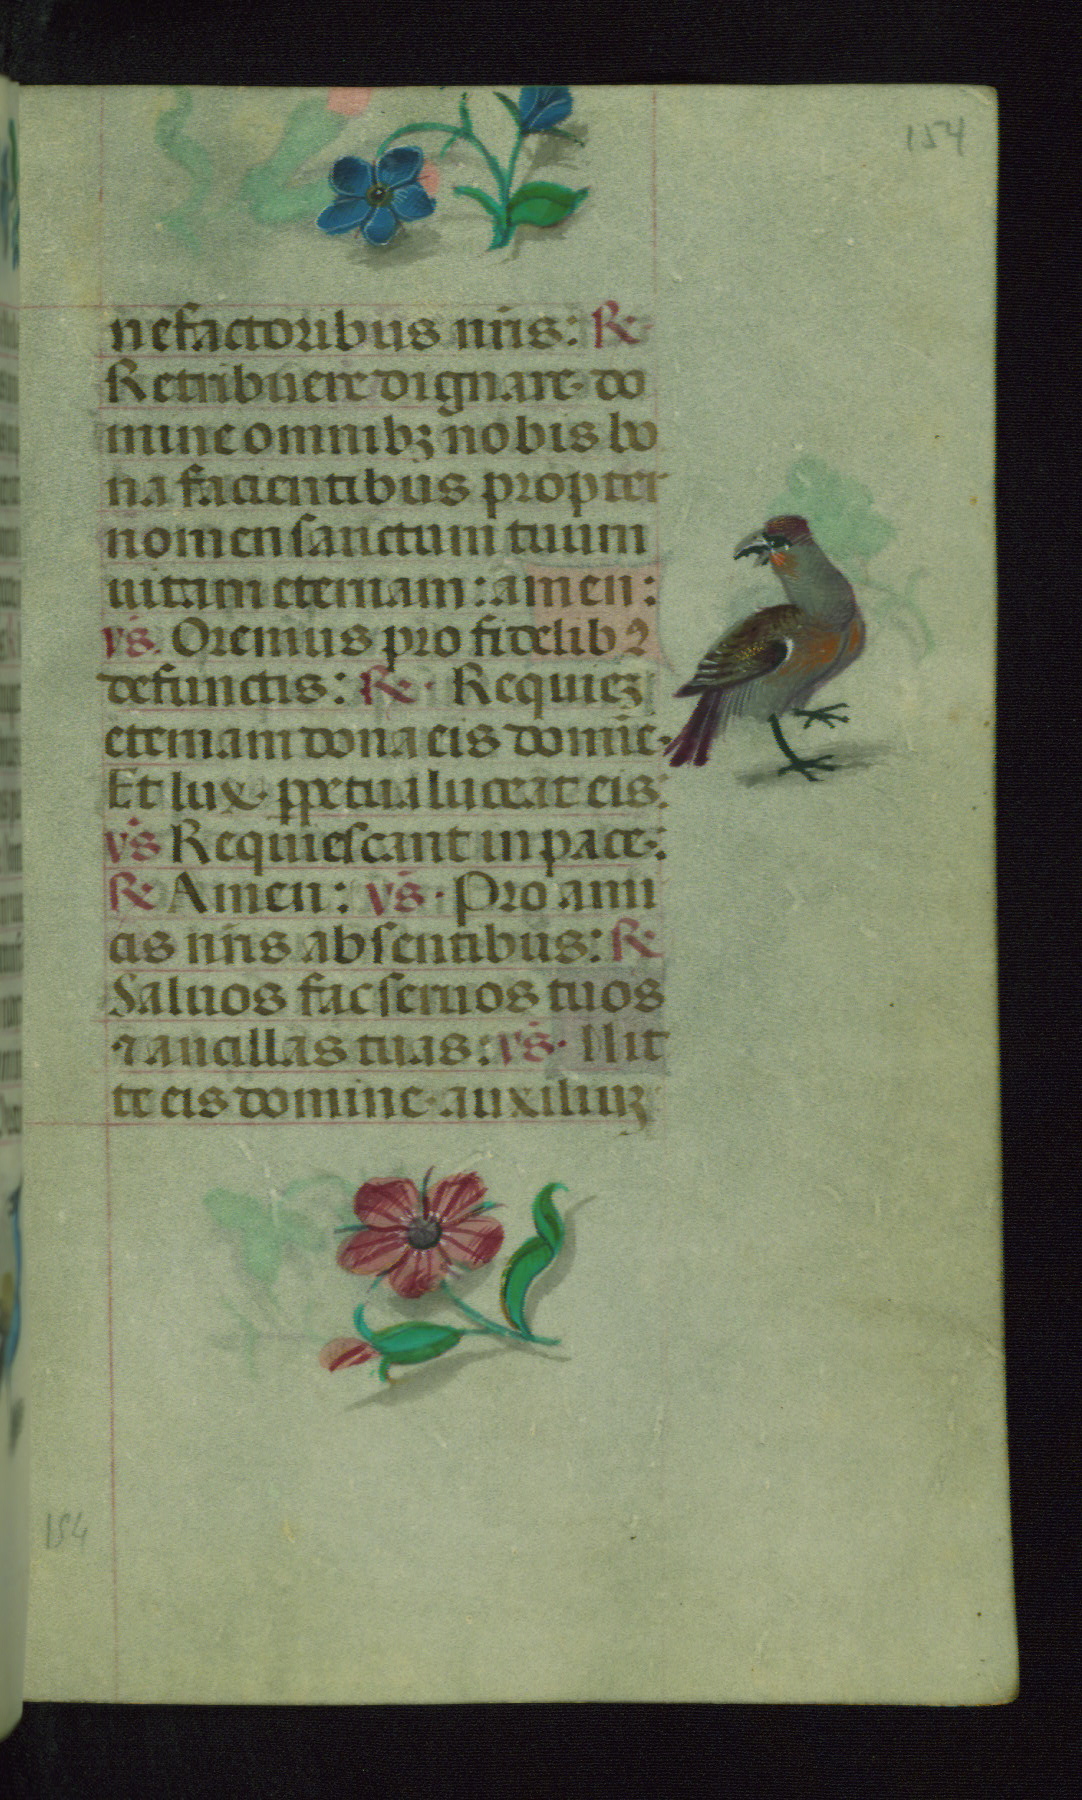 154
nefactoribus nr̄is: R̶
Retribuere dignare· do
mine omnibꝫ nobis bo
na facientibus propter
nomen sanctum tuum
uitam eternam: amen:
v̄s. Oremus pro fidelibꝰ
defunctis: R̶· Requieꝫ
eternam dona eis domīe·
Et lux· ꝑpetua luceat eis:
v̄s Requiescant in pace·:
R̶ Amen: v̄s· Pro ami
cis nr̄is absentibus: R̶
Saluos fac seruos tuos
⁊ ancillas tuas: v̄s· Mit
te eis domine· auxiliuꝫ
154